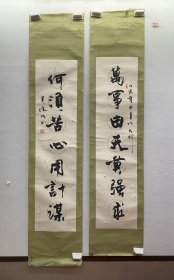 萬事由天莫强求
何須苦心用計謀